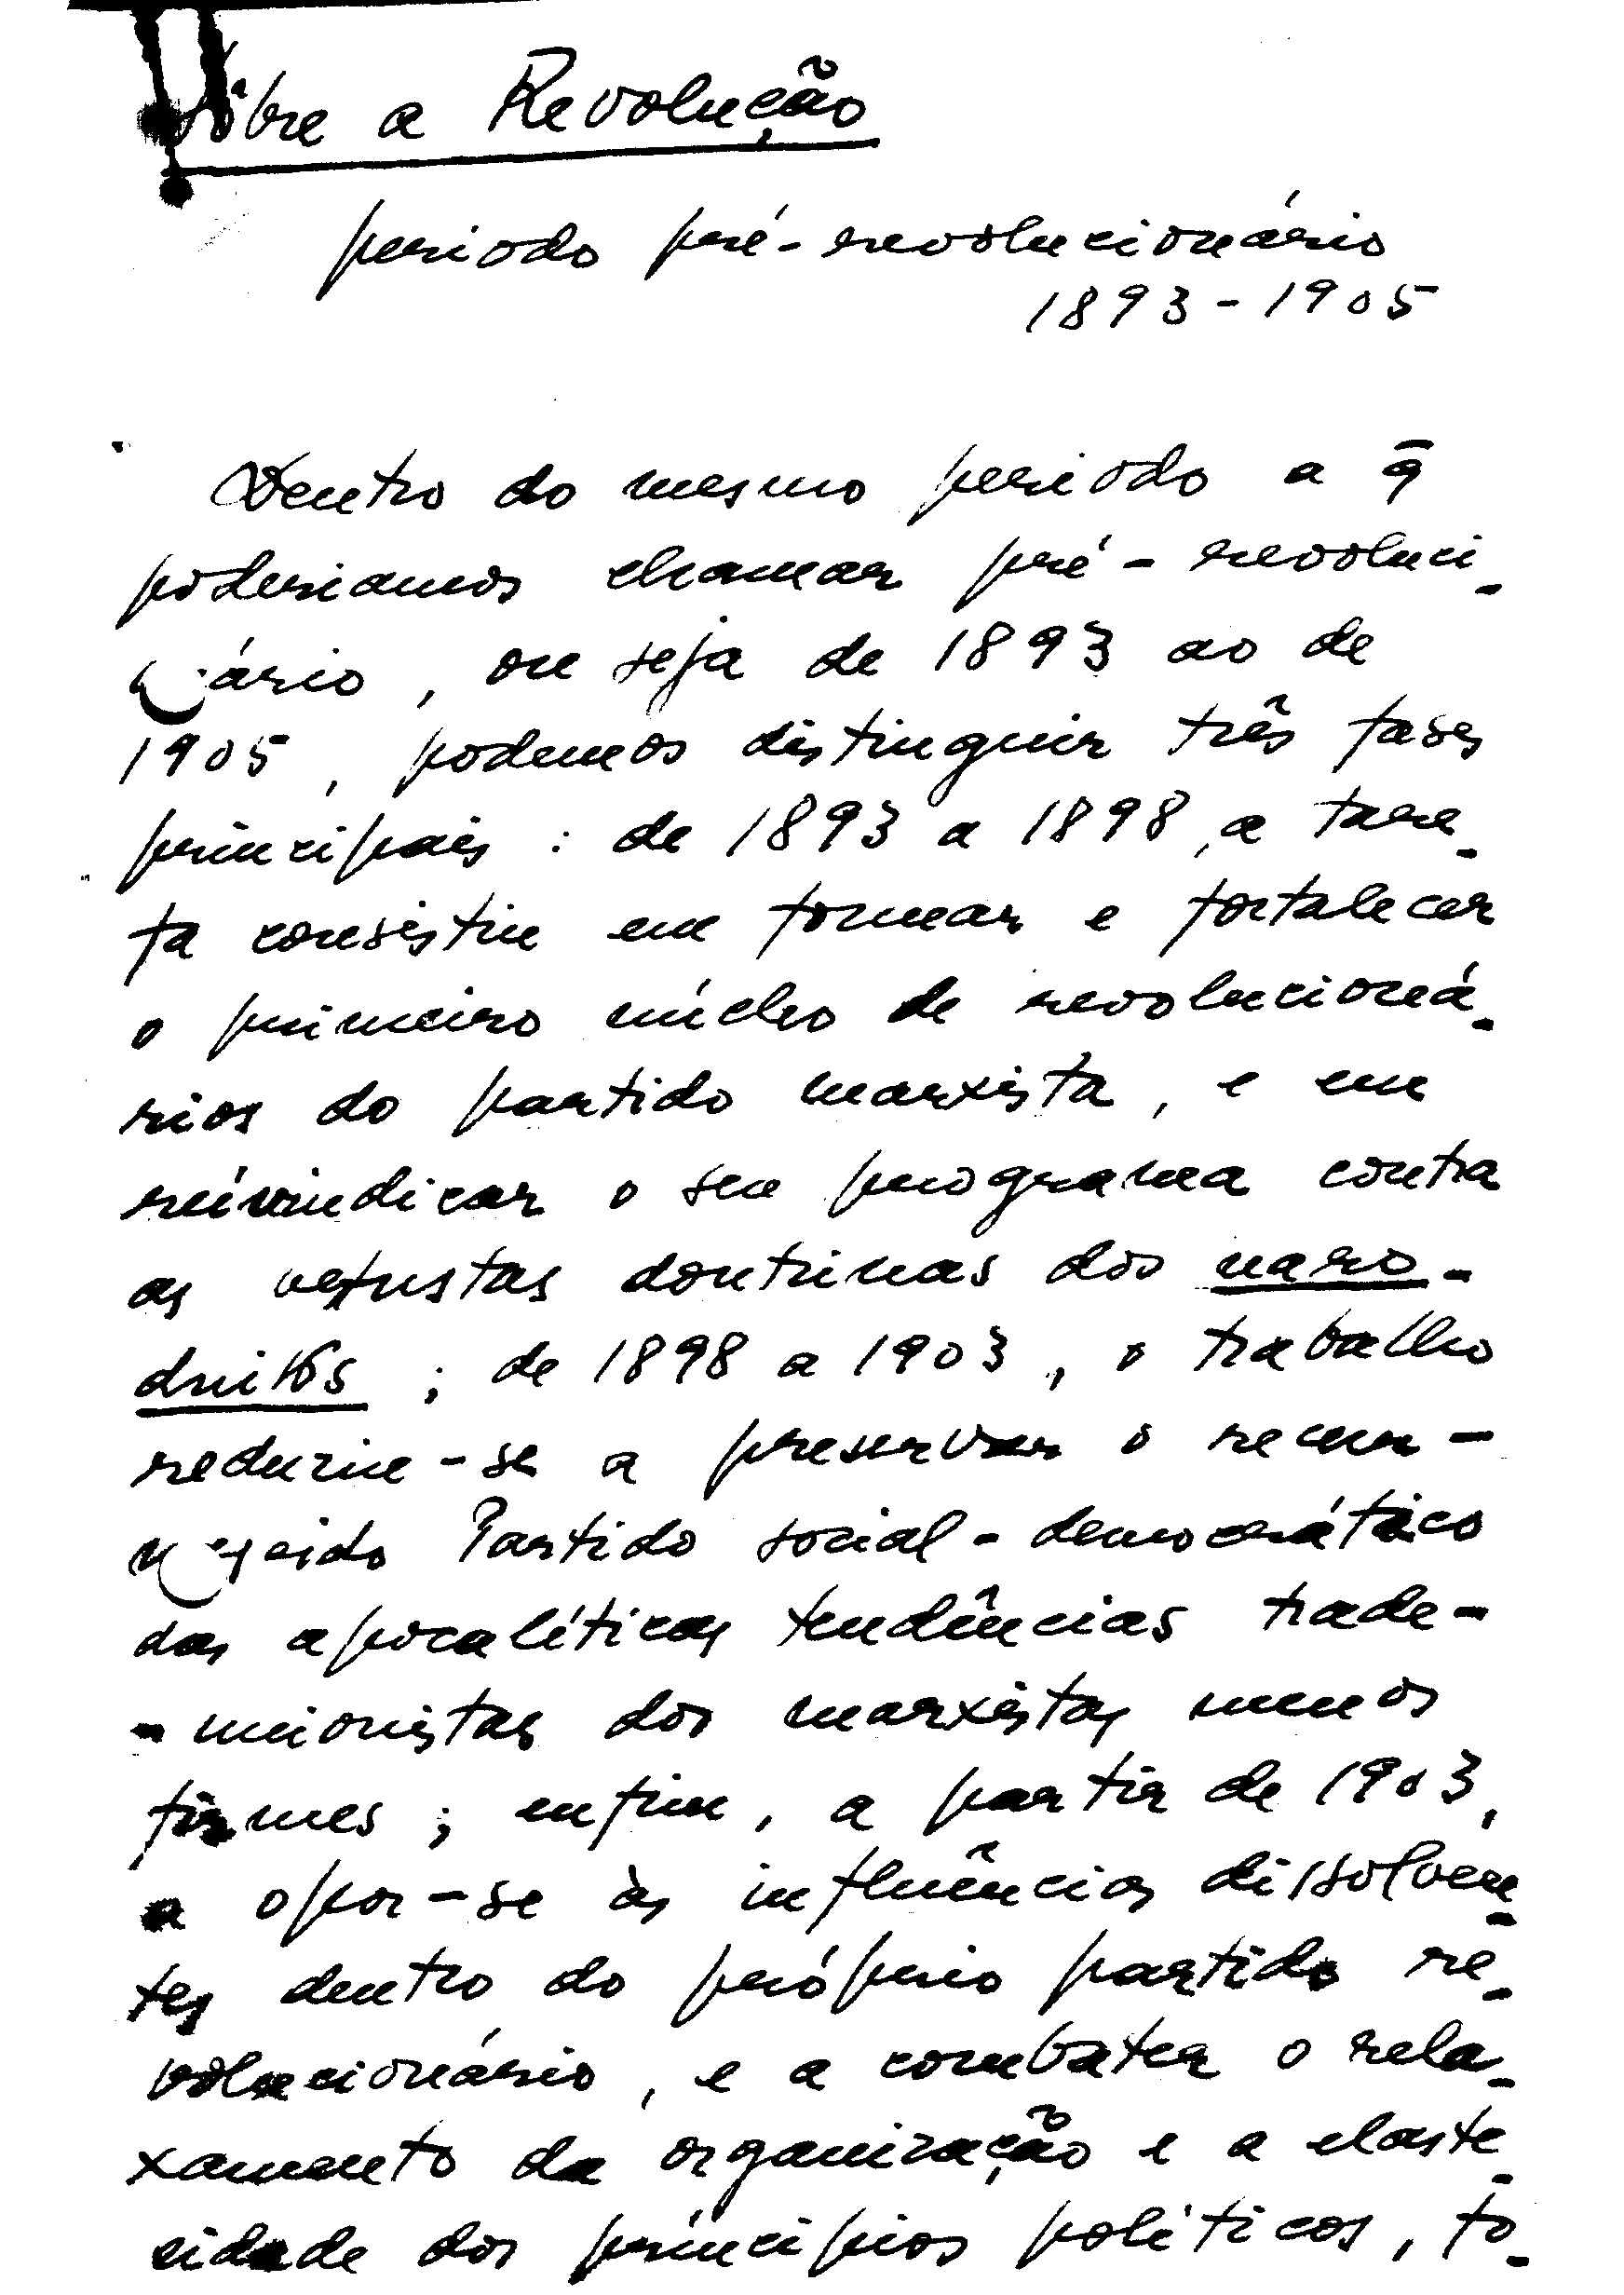 Sôbre a Revolução
periodo pré-revolucionário
1893-1905
Dentro do mesmo periodo a q̄
poderiamos chamar pré-revoluci-
nário, ou seja de 1893 ao de
1905, podemos distinguir três fases
principais: de 1893 a 1898, a tare-
fa consistiu em formar e fortalecer
o primeiro núcleo de revolucioná-
rios do partido marxista, e em
reivindicar o seu programa contra
as vetustas doutrinas dos naro-
dnikos; de 1898 a 1903, o trabalho
reduziu-se a preservar o recen-
nascido Partido social-democrático
das apocalíticas tendências trade-
-unionistas dos marxistas menos
firmes; enfim, a partir de 1903,
a opor-se às influências dissolven-
tes dentro do próprio partido re-
volucionário, e a combater o rela-
xamento da organização e a elaste-
cidade dos princípios políticos, to-